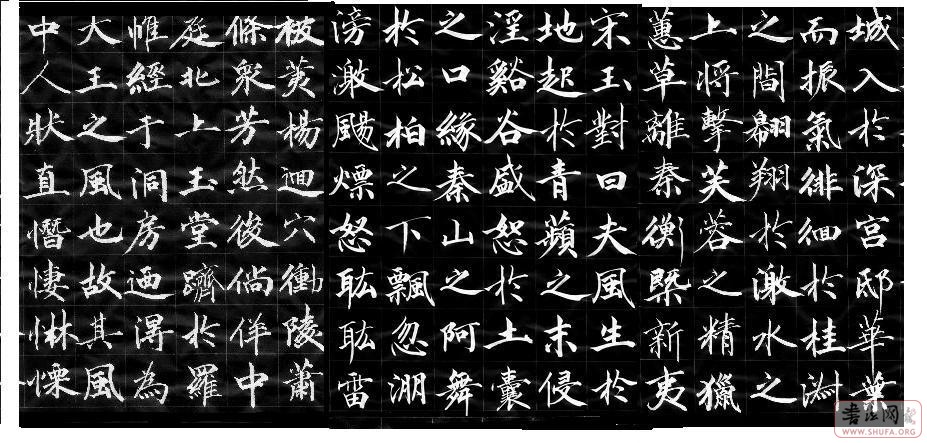 城入於深宮邸華葉
而振氣徘徊於桂
之間翱翔於激水之
上將擊芙蓉之精獵
蕙草離秦衡槩新夷
宋玉對曰夫風生於
地起於青蘋之末侵
淫谿谷盛恕於土囊
之口緣秦山之阿舞
於松柏之下飄忽淜
滂激颺熛怒耾耾雷
被荑楊迴穴衝陵蕭
條眾芳然後倘佯中
庭北上玉堂躋於羅
惟經于洞房迺淂為
大王之風也故其風
中人狀直憯悽惏慄
書法网
WWW.SHUFA.ORG